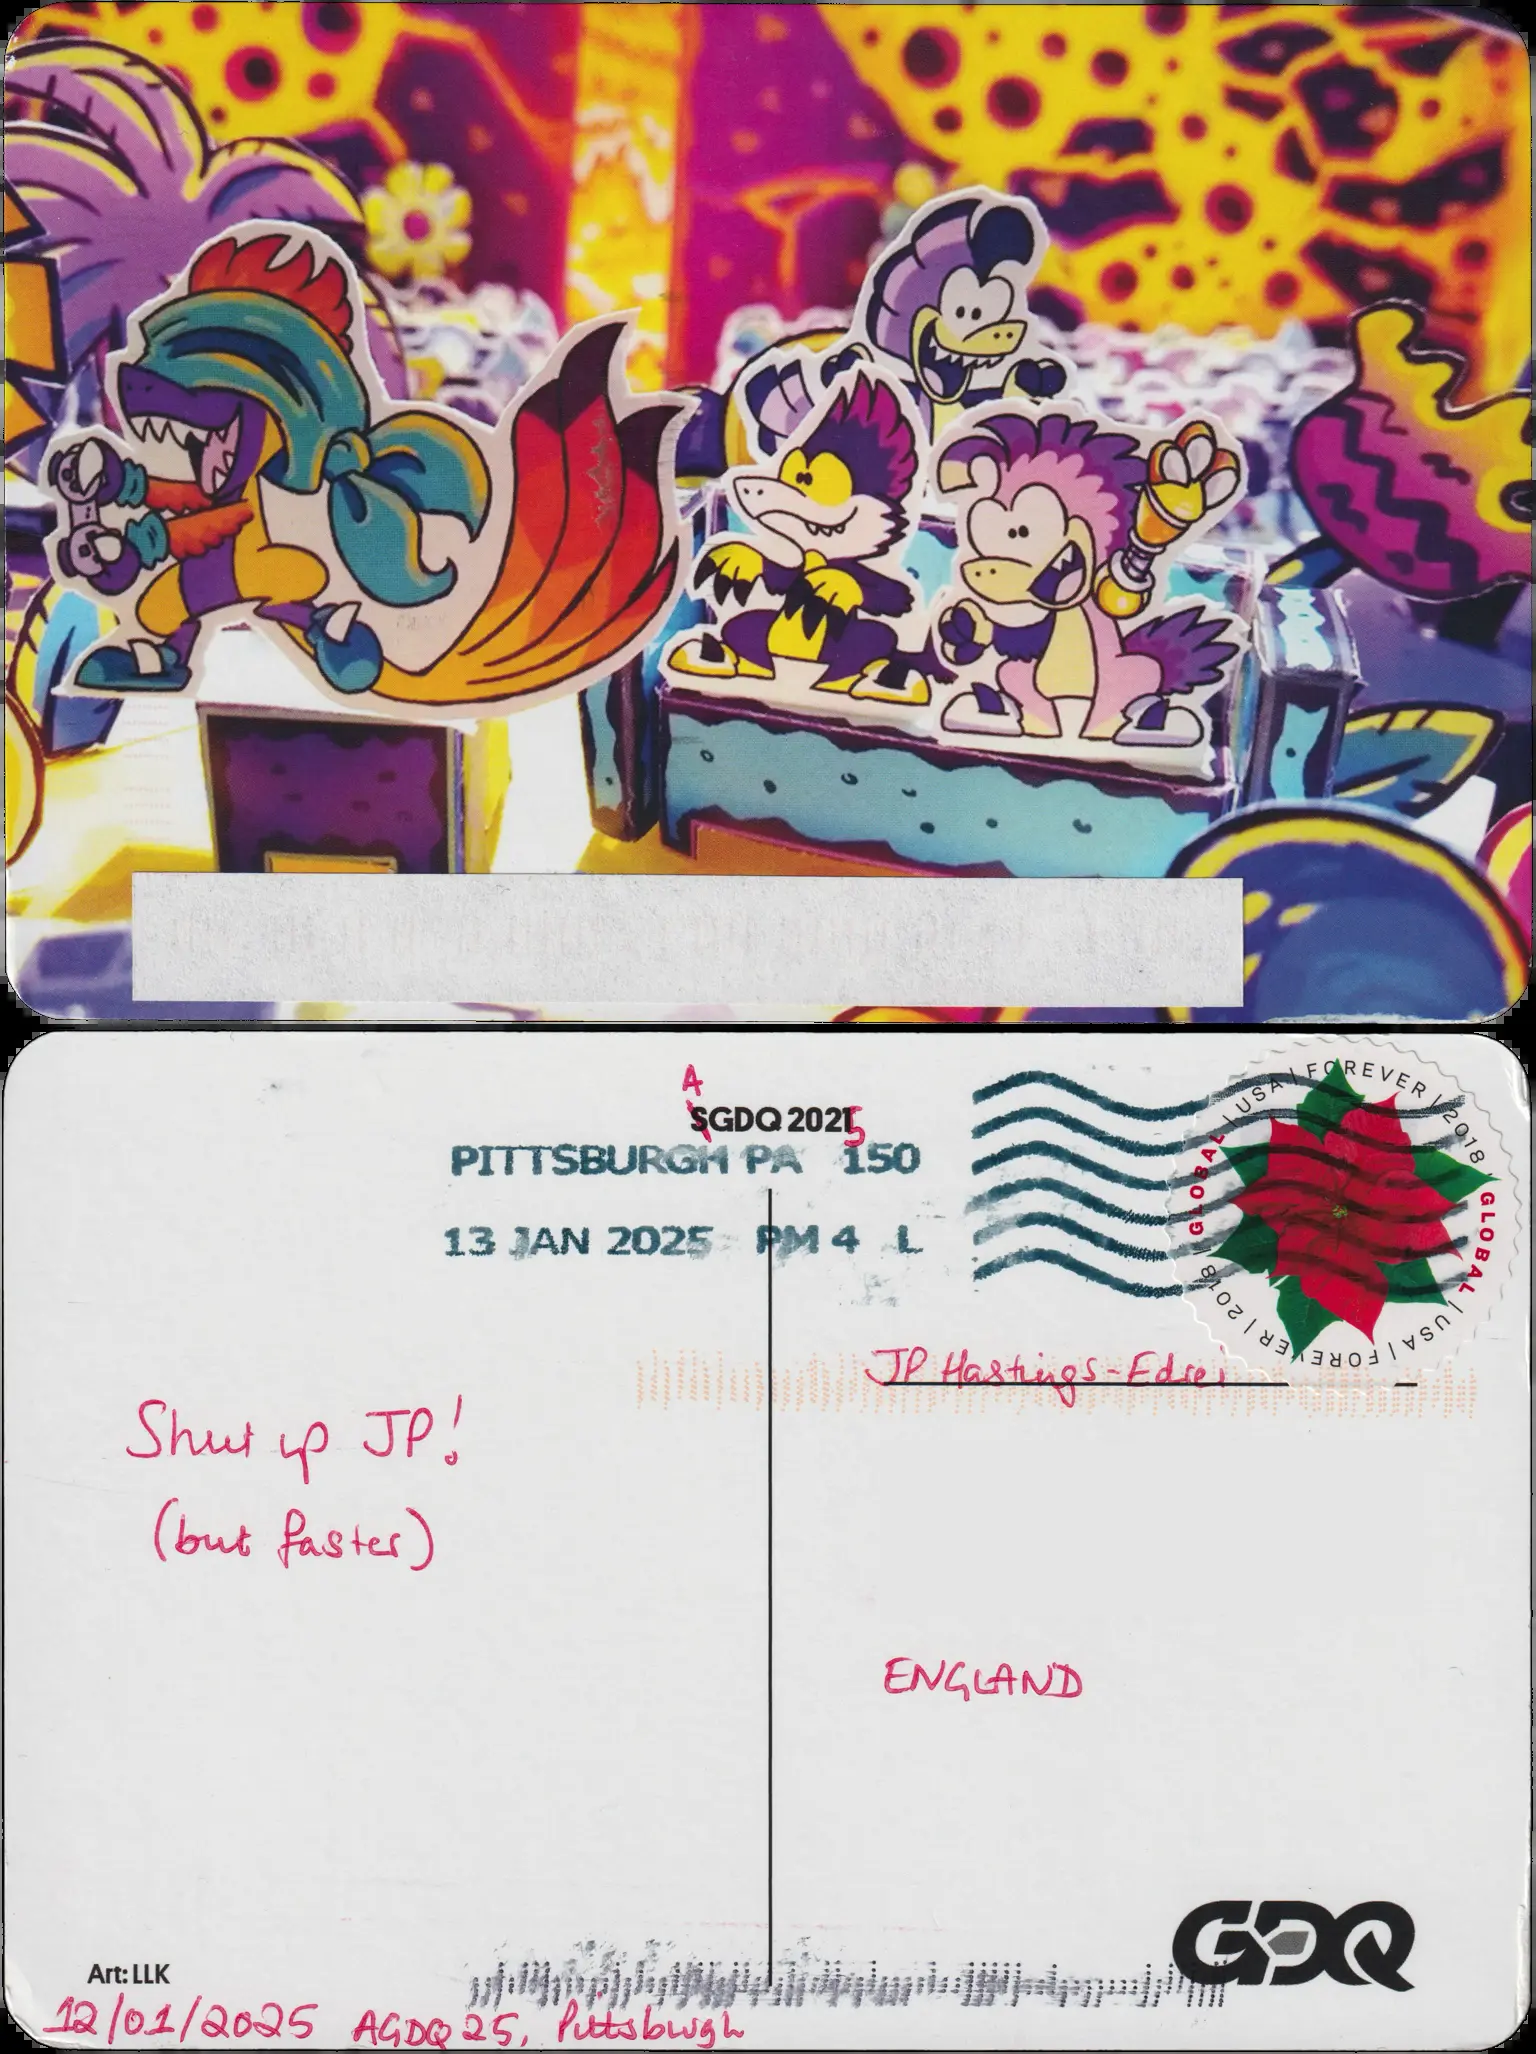 A
SGDQ 2021
5
PITTSBURGH PA 150
13 JAN 2025 PM 4 L
USA | FOREVER | 2018 | GLOBAL | USA | FOREVER | 2018 | GLOBAL |
JP Hastings-Edrei
Shut up JP!
(but faster)
ENGLAND
GDQ
Art: LLK
12/01/2025 AGDQ 25, Pittsburgh